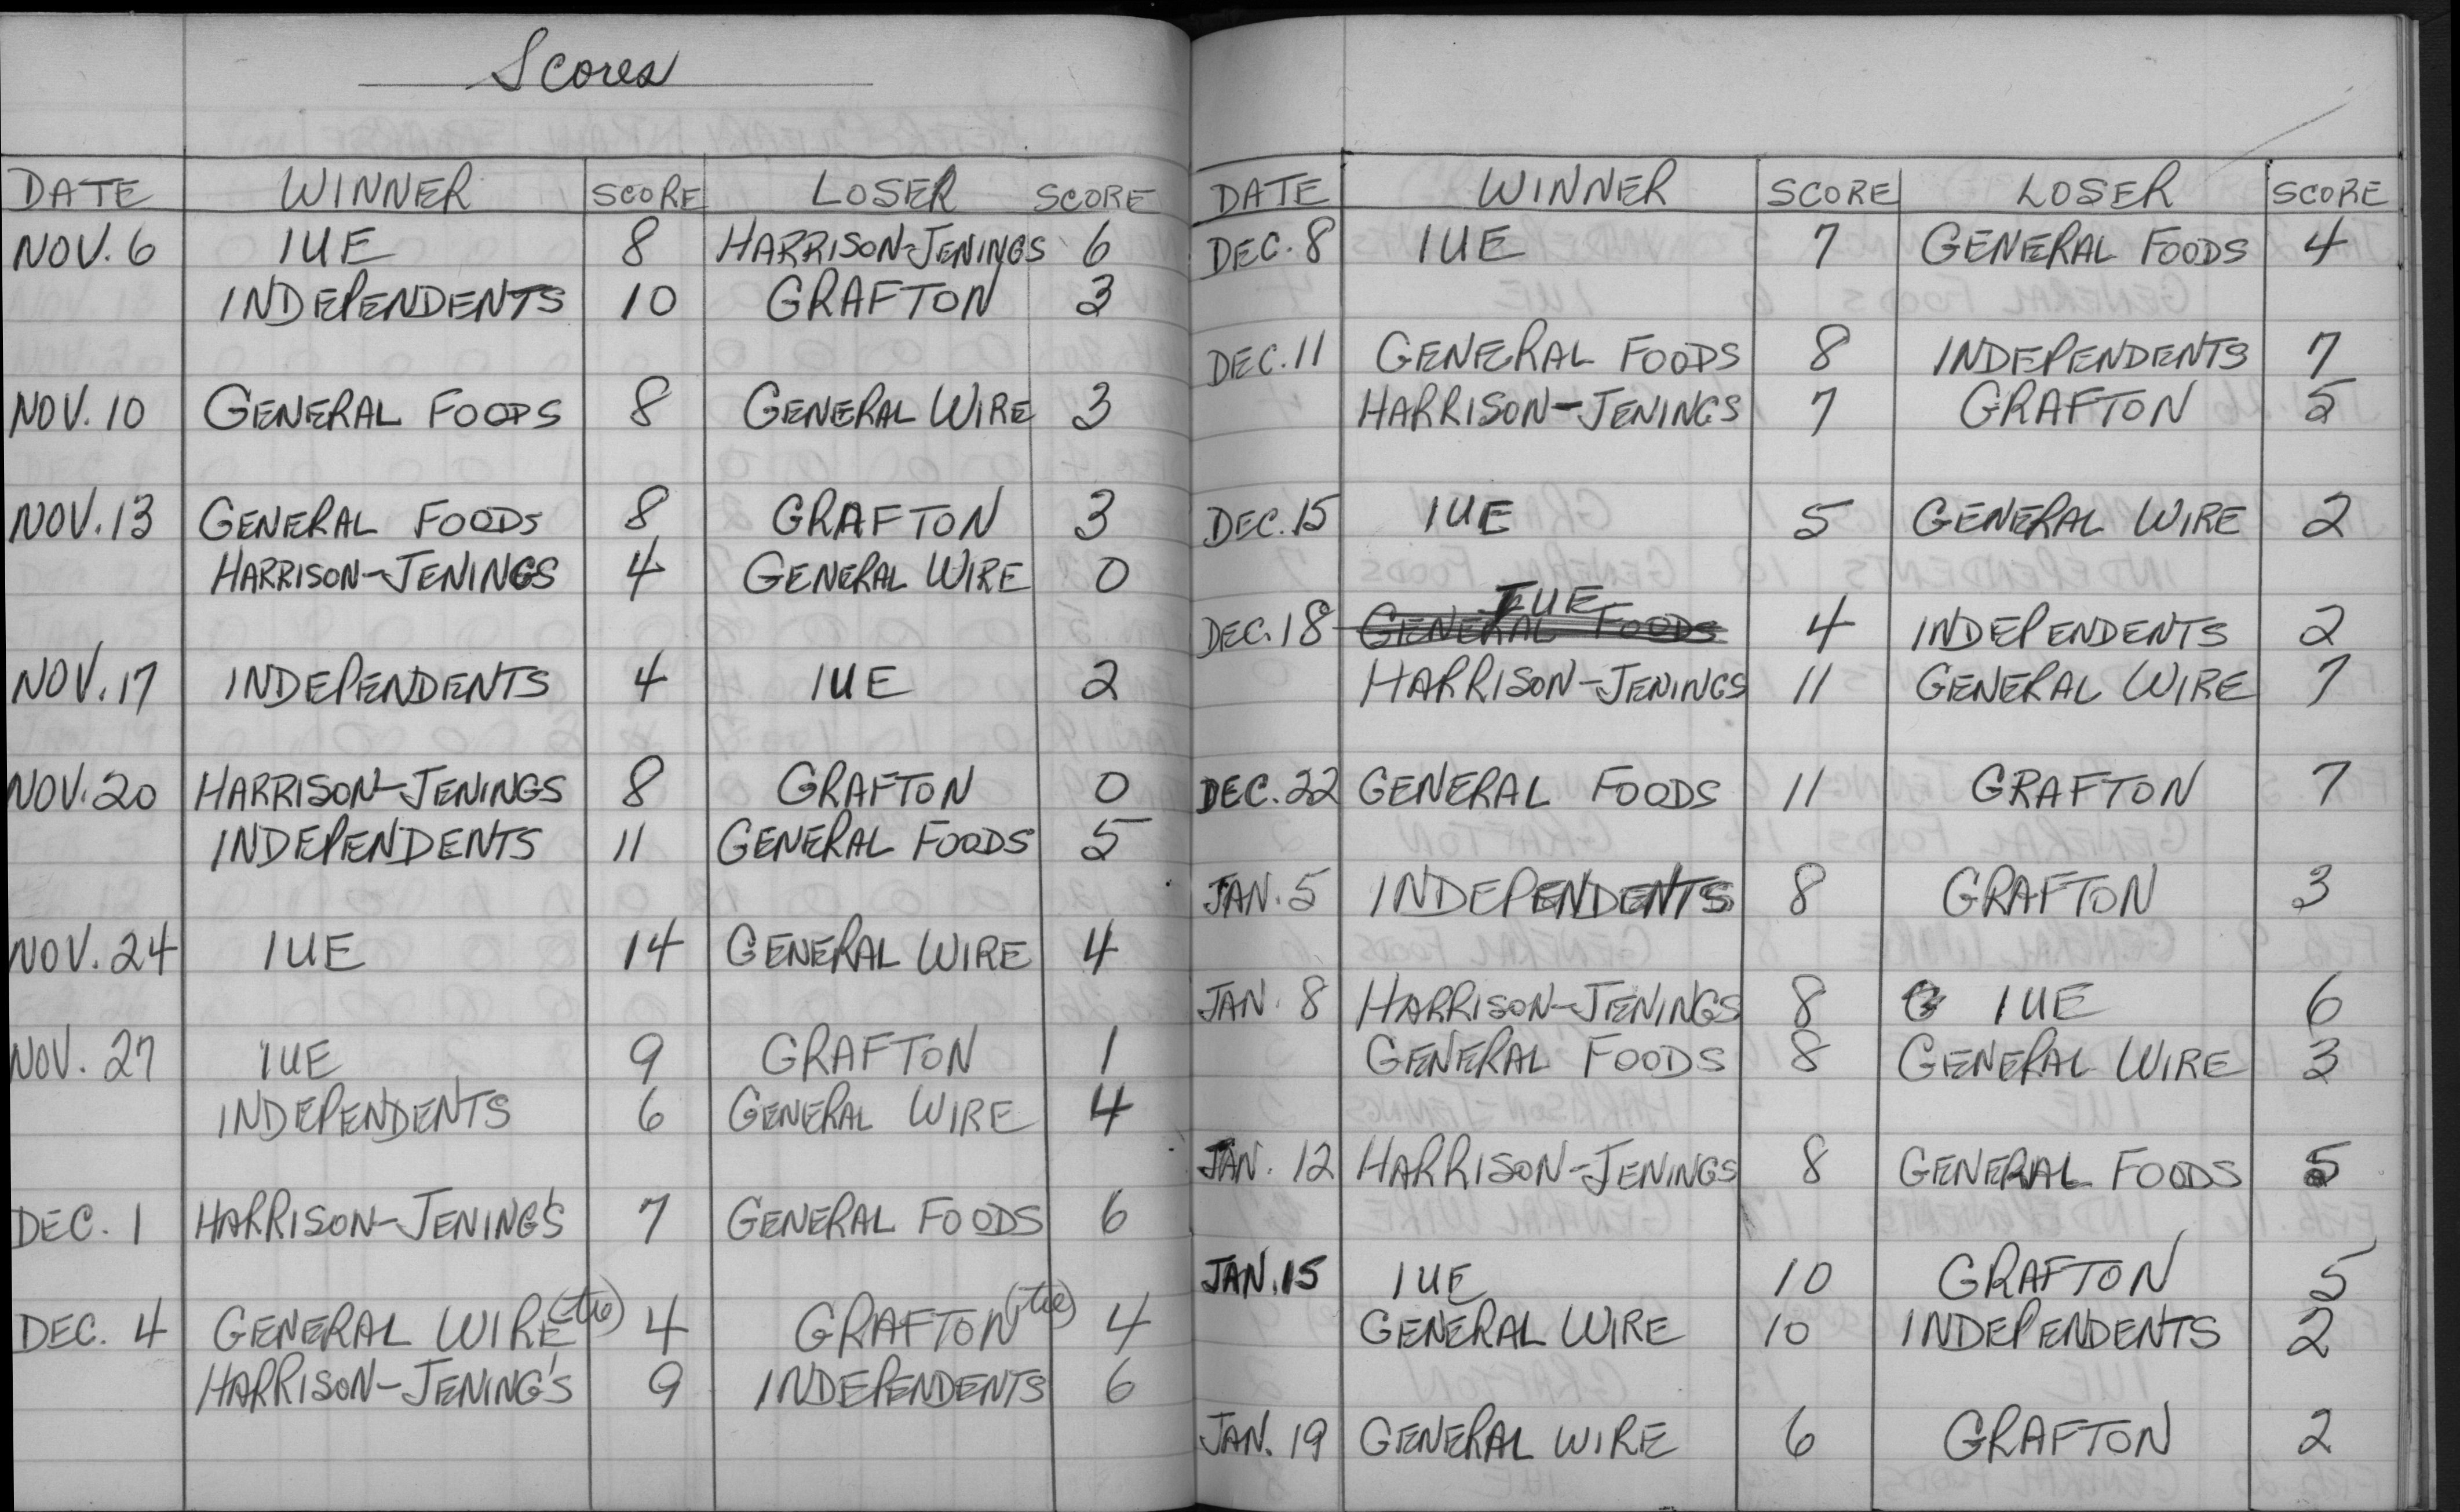 Scores
DATE WINNER SCORE LOSER SCORE
NOV. 6 IUE 8 HARRISON-JENINGS 6
INDEPENDENTS 10 GRAFTON 3
NOV. 10 GENERAL FOODS 8 GENERAL WIRE 3
NOV. 13 GENERAL FOODS 8 GRAFTON 3
HARRISON-JENINGS 4 GENERAL WIRE 0
NOV. 17 INDEPENDENTS 4 IUE 2
NOV. 20 HARRISON-JENINGS 8 GRAFTON 0
INDEPENDENTS 11 GENERAL FOODS 5
NOV. 24 IUE 14 GENERAL WIRE 4
NOV. 27 IUE 9 GRAFTON 1
INDEPENDENTS 6 GENERAL WIRE 4
DEC. 1 HARRISON-JENING'S 7 GENERAL FOODS 6
DEC. 4 GENERAL WIRE (tie) 4 GRAFTON (tie) 4
HARRISON-JENING'S 9 INDEPENDENTS 6
DATE WINNER SCORE LOSER SCORE
DEC. 8 IUE 7 GENERAL FOODS 4
DEC. 11 GENERAL FOODS 8 INDEPENDENTS 7
HARRISON-JENINGS 7 GRAFTON 5
DEC. 15 IUE 5 GENERAL WIRE 2
IUE
DEC. 18 GENERAL FOODS 4 INDEPENDENTS 2
HARRISON-JENINGS 11 GENERAL WIRE 7
DEC. 22 GENERAL FOODS 11 GRAFTON 7
JAN. 5 INDEPENDENTS 8 GRAFTON 3
JAN. 8 HARRISON-JENINGS 8 IUE 6
GENERAL FOODS 8 GENERAL WIRE 3
JAN. 12 HARRISON-JENINGS 8 GENERAL FOODS 5
JAN. 15 IUE 10 GRAFTON 5
GENERAL WIRE 10 INDEPENDENTS 2
JAN. 19 GENERAL WIRE 6 GRAFTON 2